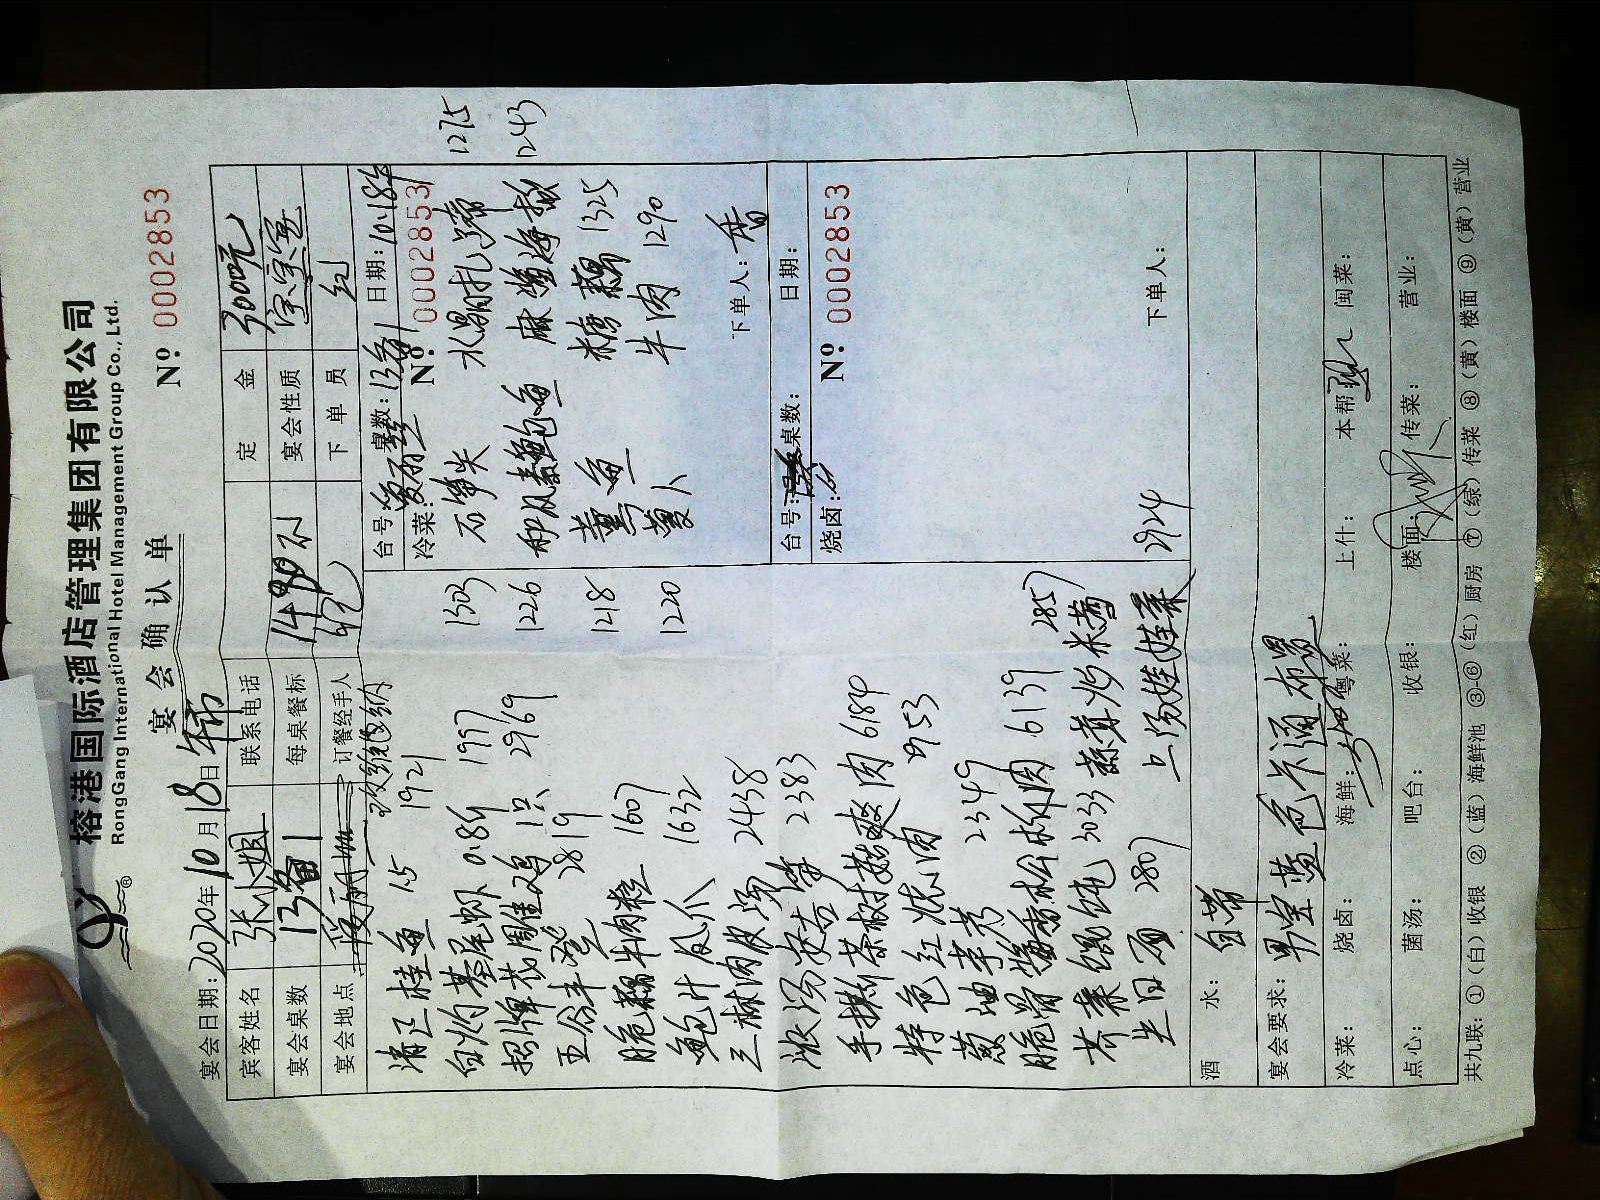 榕港国际酒店管理集团有限公司
RongGang International Hotel Management Group Co., Ltd.
®
宴会确认单
Nº 0002853
宴会日期：2020年10月18日
宾客姓名 张小姐 联系电话 定金 3000元
宴会桌数 13备1 每桌餐标 宴会性质 宝宝宴
宴会地点 订餐经手人 下单员 红
清正桂鱼 1.5 1921
白灼基尾虾 0.8斤 1997
招牌花雕鸡 1只 2969
五谷丰登 2819
脆藕牛肉粒 1607
鲍汁凤爪 1632
三丝肉皮汤 2438
浓汤 2383
手撕茶树菇爽肉 6184
特色红烧肉 2953
葱油芋艿 2349
脆骨酱香松板肉 6139
荠菜馄饨 3033 蒜茸炒米苋 2857
生日面 2807 上汤娃娃菜 2924
台号： 桌数：13备1 日期：10.18
冷菜： Nº 0002853
1303 石笋尖 水晶扎蹄 1275
1226 素鲍鱼 麻酱海蜇 1243
1218 熏鱼 糖藕 1325
1220 萝卜 牛肉 1290
下单人：香
台号： 桌数： 日期：
烧卤： Nº 0002853
下单人：
酒水： 自带
宴会要求： 男宝蓝色卡通布置
冷菜： 烧卤： 海鲜： 粤菜： 上什： 本帮： 闽菜：
点心： 菌汤： 吧台： 收银： 楼面： 传菜： 营业：
共九联：①（白）收银 ②（蓝）海鲜池 ③-⑥（红）厨房 ⑦（绿）传菜 ⑧（黄）楼面 ⑨（黄）营业